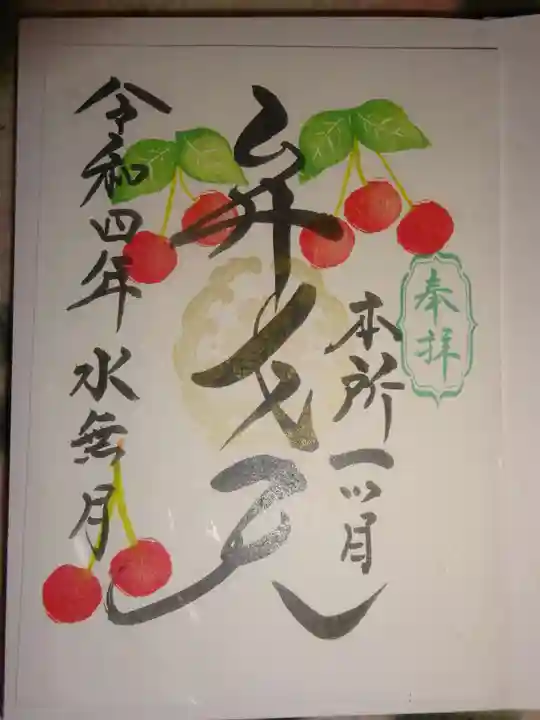 奉拝
本所一ツ目
弁天
令和四年 水無月